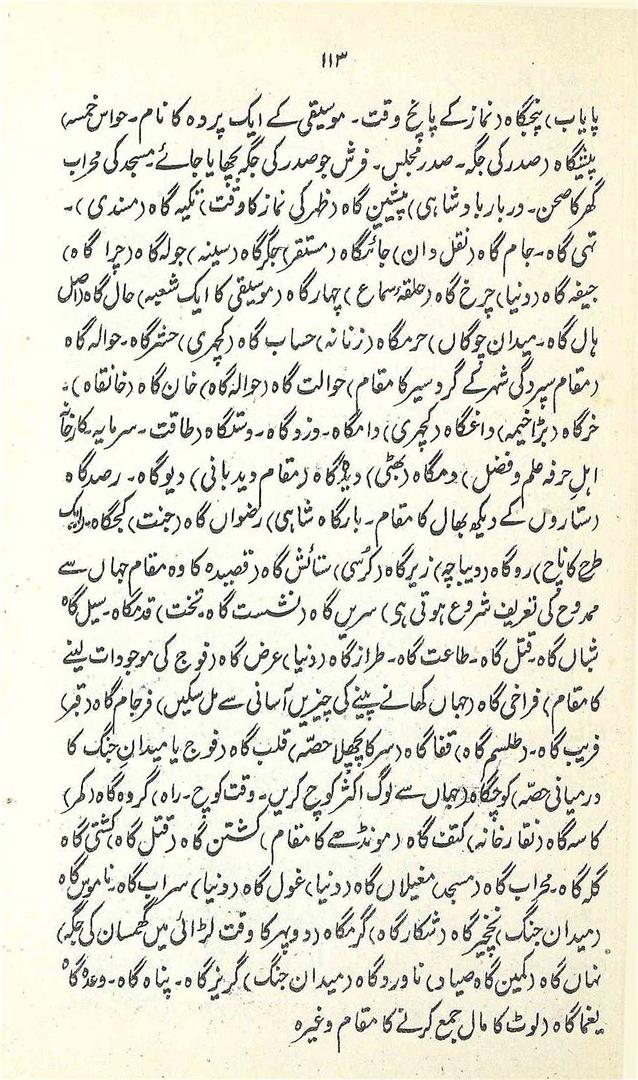 ۱۱۳
پایاب) پنجگاہ (نماز کے پانچ وقت۔ موسیقی کے ایک پردہ کا نام۔ حواس خمسہ)
پیشگاہ (صدر کی جگہ۔ صدر مجلس۔ فرش جو صدر کی جگہ بچھایا جائے۔ مسجد کی محراب
گھر کا صحن۔ دربار بادشاہی) پیشیں گاہ (ظہر کی نماز کا وقت) تکیہ گاہ (مسندی)۔
تہی گاہ۔ جام گاہ (نقل دان) جائگاہ (مستقر) جگر گاہ (سینہ) جولہ گاہ (چرا گاہ)
جیفہ گاہ (دنیا) چرخ گاہ (حلقۂ سماع) چہار گاہ (موسیقی کا ایک شعبہ) حال گاہ (اصل
ہال گاہ۔ میدان چوگاں) حرمگاہ (زنانہ) حساب گاہ (کچہری) حشر گاہ۔ حوالہ گاہ
(مقام سپردگی شہر کے گرد سیر کا مقام) حوالت گاہ (حوالہ گاہ) خان گاہ (خانقاہ)۔
خرگاہ (بڑا خیمہ) داغگاہ (کچہری) دامگاہ۔ دزدگاہ۔ دستگاہ (طاقت۔ سرمایہ۔ کارخانہ
اہل حرفہ علم و فضل) دمگاہ (بھٹی) دیدگاہ (مقام دیدبانی) دیوگاہ۔ رصدگاہ
(ستاروں کے دیکھ بھال کا مقام۔ بارگاہ شاہی) رضواں گاہ (جنت) کجگاہ۔ (ایک
طرح کا تاج) روگاہ (دیباچہ) زیرگاہ (کرسی) ستائش گاہ (قصیدہ کا وہ مقام جہاں سے
ممدوح کی تعریف شروع ہوتی ہی) سریں گاہ (نشست گاہ۔ تخت) قدمگاہ۔ سیل گاہ
شباں گاہ۔ قتل گاہ۔ طاعت گاہ۔ طراز گاہ (دنیا) عرض گاہ (فوج کی موجودات لینے
کا مقام) فراخی گاہ (جہاں کھانے پینے کی چیزیں آسانی سے مل سکیں) فرجام گاہ (قبر)
فریب گاہ۔ (طلسم گاہ) قفاگاہ (سر کا پچھلا حصہ) قلب گاہ (فوج یا میدان جنگ کا
درمیانی حصہ) کوچگاہ (جہاں سے لوگ اکثر کوچ کریں۔ وقت کوچ۔ راہ) گروہ گاہ (کمر)
کاسہ گاہ (نقارخانہ) کتف گاہ (مونڈھے کا مقام) کشتن گاہ (قتل گاہ) کشتی گاہ
گلہ گاہ۔ محراب گاہ (مسجد) مغیلاں گاہ (دنیا) غول گاہ (دنیا) سراب گاہ۔ ناموس گاہ
(میدان جنگ) نخچیر گاہ (شکار گاہ) گرمگاہ (دوپہر کا وقت لڑائی میں گھمسان کی جگہ)
نہاں گاہ (کمین گاہ صیاد) ناوردگاہ (میدان جنگ) گریز گاہ۔ پناہ گاہ۔ وعدہ گاہ
یغماگاہ (لوٹ کا مال جمع کرنے کا مقام وغیرہ